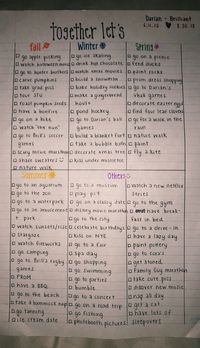 Darian + Brilliant
together let's
Fall
go apple picking
watch halloweentown
go to hunter brothers
carve pumpkins
take grad pics
tour JFU
roast pumpkin seeds
have a bonfire
go on a hike
watch "the nun"
go to Bri's soccer
games
scary movie marathon
share sweaters
nature walk
Winter
go ice skating
drink hot chocolate
watch xmas movies
build a snowman
bake holiday cookies
make a gingerbread
house
pond hockey
go to Darian's ball
games
build a blanket fort
take a bubble bath
decorate xmas tree
kiss under mistletoe
Spring
go on a picnic
feed ducks
paint rocks
prom dress shopping
go to Darian's
games
decorate easter eggs
find four leaf clover
go for a walk in the
rain
nature walk
paint
fly a kite
Summer
go to an aquarium
go to the zoo
go to a waterpark
go to an amusement
park
watch sunsets/rise
stargaze
watch fireworks
go camping
go to Bri's rugby
games
PROM
have a BBQ
go to the beach
take a hammock nap
go tanning
ice cream date
Others
go to a museum
play pool
go on a staycation
disney movie marathon
go to the city
collect shells
kiss on NYE
go to a fair
spa day
go shopping
go swimming
go to parties
bumble
go to a concert
go on a road trip
go fishing
photobooth pictures
watch a new
netflix
series
go to the gym
have break-
fast in bed
go to a drive-in
have a lazy day
paint pottery
go to Cora's
get stoned
family guy marathon
take cute pics
discover new music
nap all day
get a cat
have lots of
sleepovers